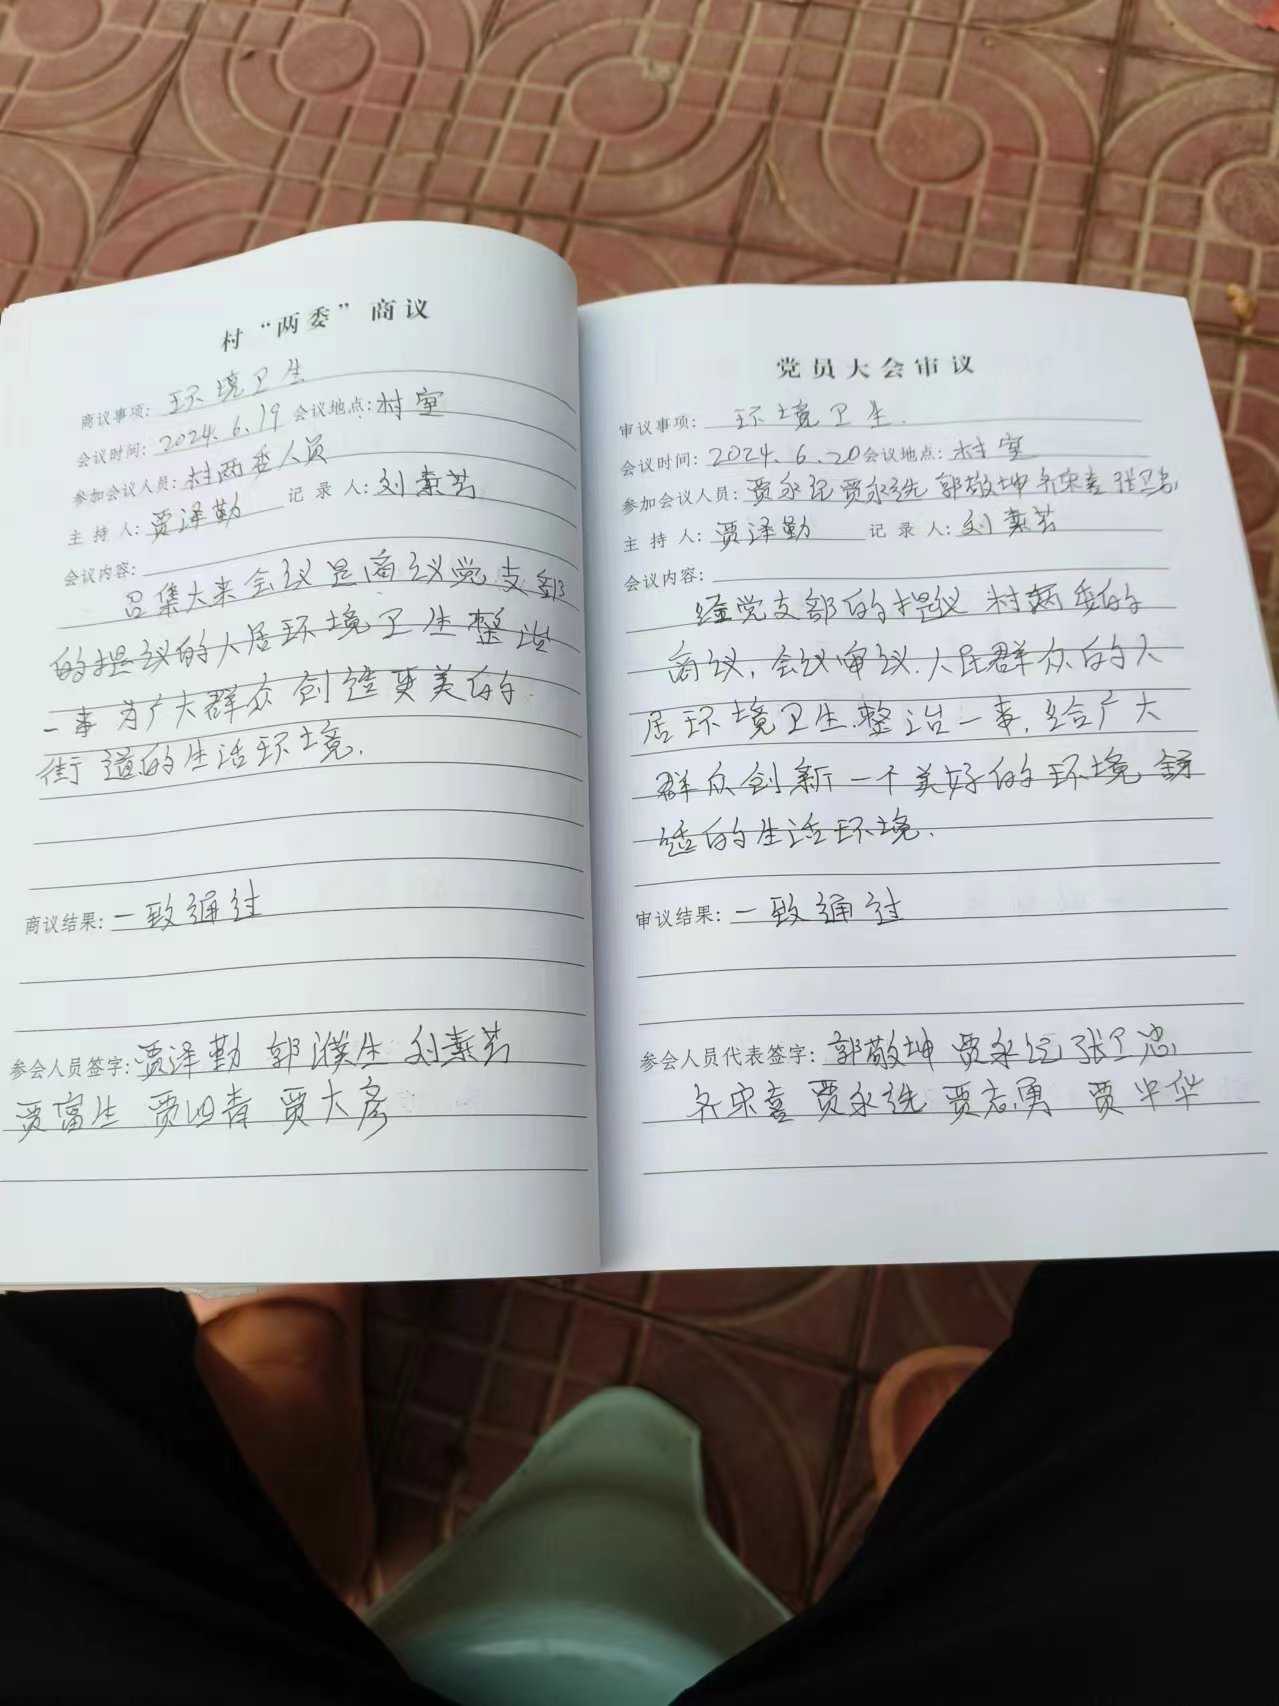 村“两委”商议
商议事项: 环境卫生
会议时间: 2024.6.19 会议地点: 村室
参加会议人员: 村两委人员
主 持 人: 贾泽勤 记 录 人: 刘素芸
会议内容:
召集大来会议是商议党支部
的提议的人居环境卫生整治
一事 为广大群众 创造更美的
街道的生活环境.
商议结果: 一致通过
参会人员签字: 贾泽勤 郭濮生 刘素芸
贾富生 贾 贾大彦
党员大会审议
审议事项: 环境卫生.
会议时间: 2024.6.20 会议地点: 村室
参加会议人员: 贾永 贾永选 郭敬坤 齐宋喜 张卫忠
主 持 人: 贾泽勤 记 录 人: 刘素芸
会议内容:
经党支部的提议 村两委的
商议, 会议审议. 人民群众的人
居环境卫生.整治一事, 给广大
群众创新一个美好的环境
适的生活环境.
审议结果: 一致通过
参会人员代表签字: 郭敬坤 贾永 张卫忠
齐宋喜 贾永选 贾志勇 贾 华